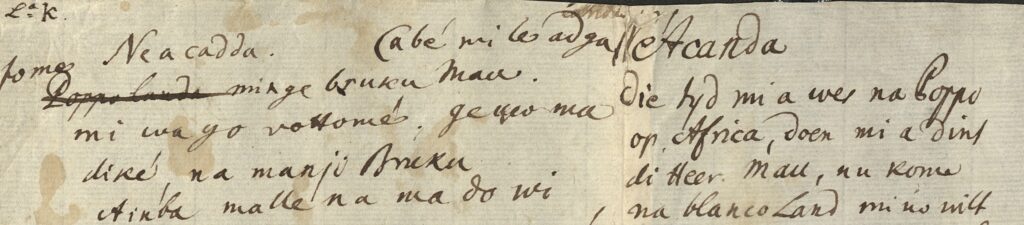 La. K.
Neacadda. Cabé mi le adga
tome Poppo Lands minge bruku Mau.
mi wago vottomé. gewo ma
diké, na manji Bruku
Ainba malle na ma do wi
neAcanda
die tyd mi a wes na Poppo
op Africa, doen mi a dint
di Heer. Mau, nu kome
na blanco Land mi no wilt